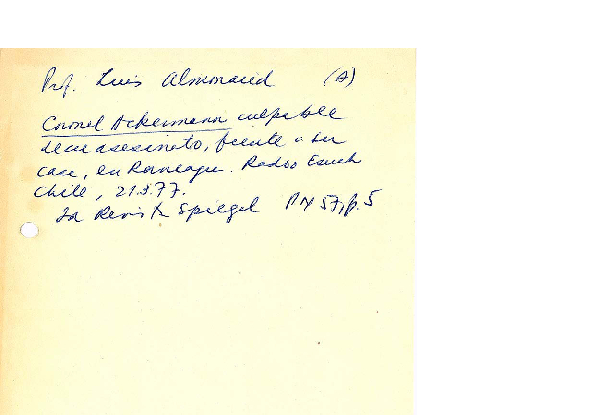 Prof. Luis Almonacid (A)
Coronel Ackermann culpable
de un asesinato, frente a su
casa, en Rancagua. Radio
Chile, 21.3.77.
Revista Spiegel p. 5